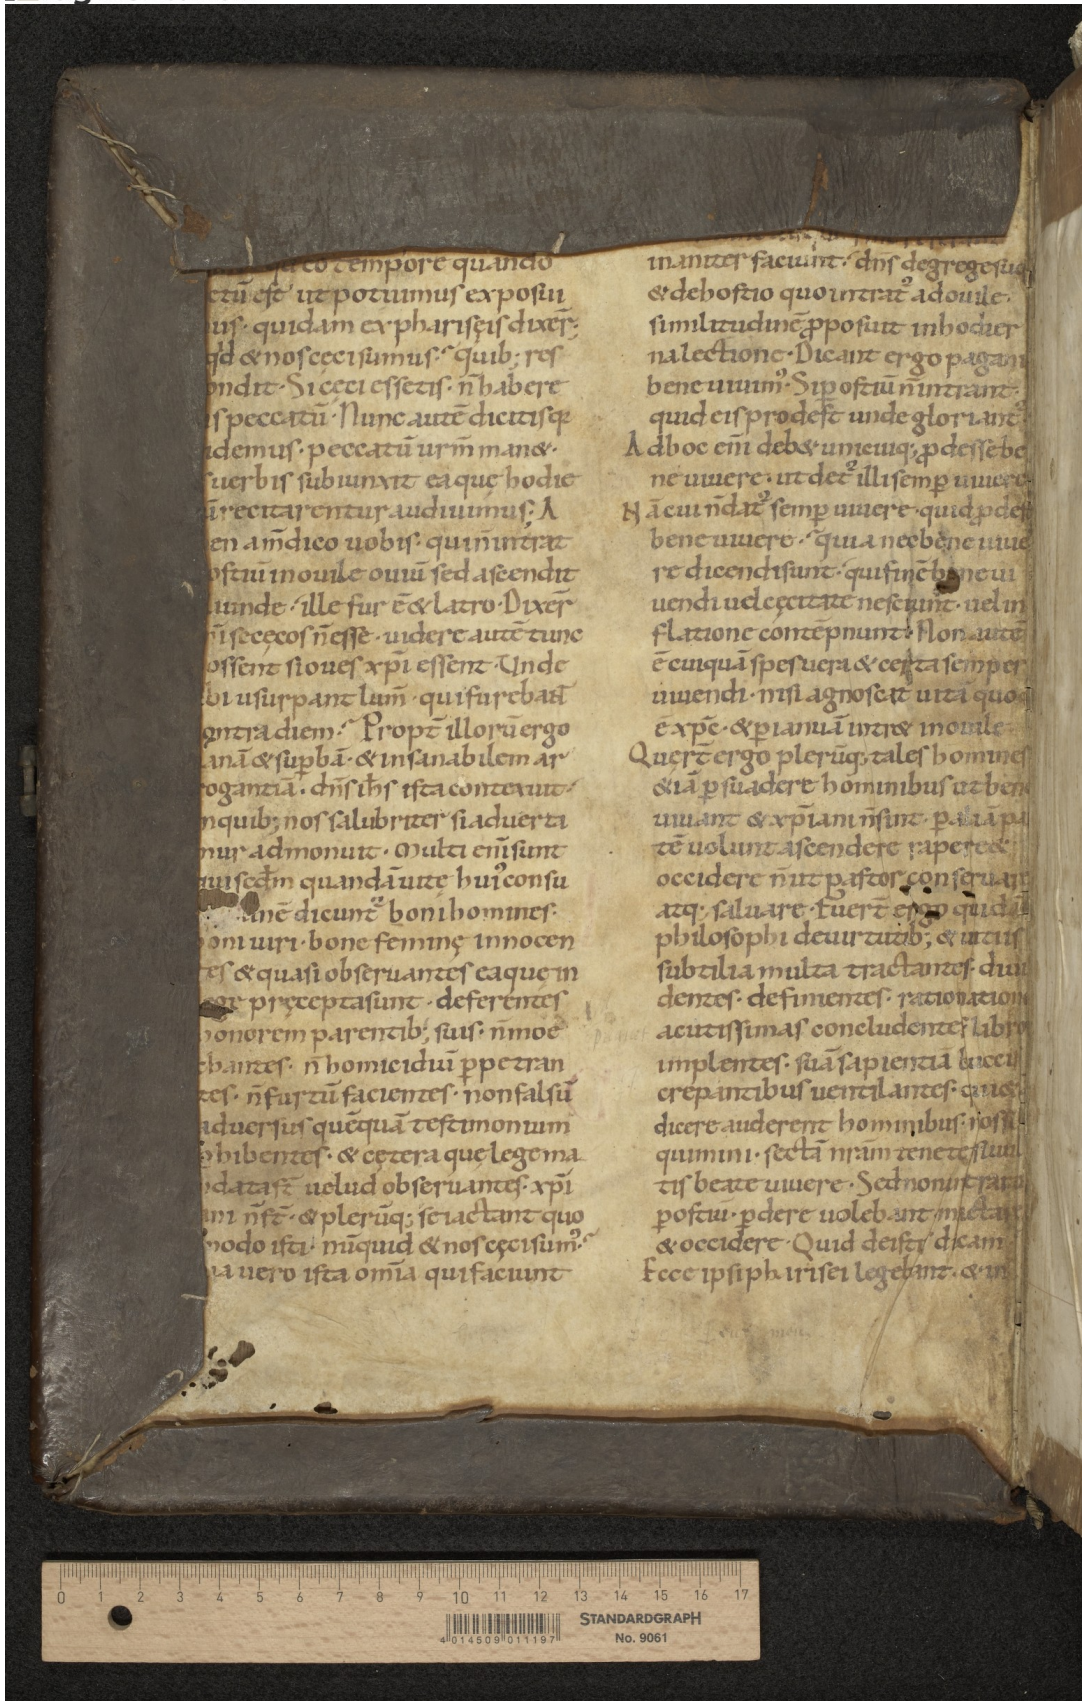 eo tempore quando
ctū est ut potuimus exposui
us· quidam ex phariseis dixer̄·
qd̄ & nos ceci sumus· quib; res
ondit· Si ceci essetis· n̄ habere
is peccatū· Nunc autē dicitis q̄
idemus· peccatū urm̄ man&·
uerbis subiunxit ea que hodie
ū recitarentur audiuimus; A
en am̄ dico uobis· qui n̄ intrat
ostiū in ouile ouiū sed ascendit
iunde· ille fur ē & latro· Dixer̄
ri se cęcos n̄ esse· uidere autē tunc
ossent si oues xp̄i essent· Unde
bi usurpant lum̄· qui furebant
ontra diem· Propt̄ illorū ergo
anā & sup̄bā· & insanabilem ar
rogantiā· dn̄s ih̄s ista contexuit·
nquib; nos salubriter si aduerti
mur admonuit· Multi enī sunt
qui sed̄m quandā uitę hui᾽ consu
anē dicunt᾽ boni homines·
boni uiri· bone feminę innocen
tes & quasi obseruantes ea que in
ege pręcepta sunt· deferentes
honorem parentib; suis· n̄ moe
chantes· n̄ homicidiū ppetran
tes· n̄ furtū facientes· non falsū
aduersus quēquā testimonium
hibentes· & cętera que lege ma
data st̄ uelud obseruantes· xp̄i
ani n̄ st̄· & plerūq; se iactant quo
modo isti· nūquid & nos cęci sum᾽·
ia uero ista om̄ia qui faciunt
inaniter faciunt· dn̄s de grege suo
& de hostio quo intrat᾽ ad ouile·
similitudinē pposuit in hodier
na lectione· Dicant ergo pagani
bene uiuim᾽· Si p ostiū n̄ intrant·
quid eis prodest unde gloriant᾽·
Ad hoc enī deb& unicuiq; pdesse be
ne uiuere· ut det᾽ illi semp uiuere
Nā cui n̄ dat᾽ semp uiuere· quid pdest
bene uiuere· quia nec bene uiue
re dicendi sunt· qui finē bene ui
uendi uel cęcitate nesciunt· uel in
flatione contēpnunt· Non autē
ē cuiquā spes uera & certa semper
uiuendi· nisi agnoscat uitā quod
ē xp̄c· & p ianuā intr& in ouile·
Quer̄t ergo plerūq; tales homines
& iā psuadere hominibus ut bene
uiuant & xp̄iani n̄ sint· p aliā pa
tē uolunt ascendere rapere &
occidere n̄ ut pastor conseruare
atq; saluare· Fuer̄t ergo quidā
philosophi de uirtutib; & uitiis
subtilia multa tractantes· diui
dentes· definientes· ratiocination
acutissimas concludentes libro
implentes· suā sapientiā buccis
crepantibus uentilantes· qui &
dicere auderent hominibus· nos se
quimini· sectā nrām tenete si uul
tis beate uiuere· Sed non intrabant
p ostiū· pdere uolebant mactare
& occidere· Quid de istis dicam
Ecce ipsi pharisei legebant· & in